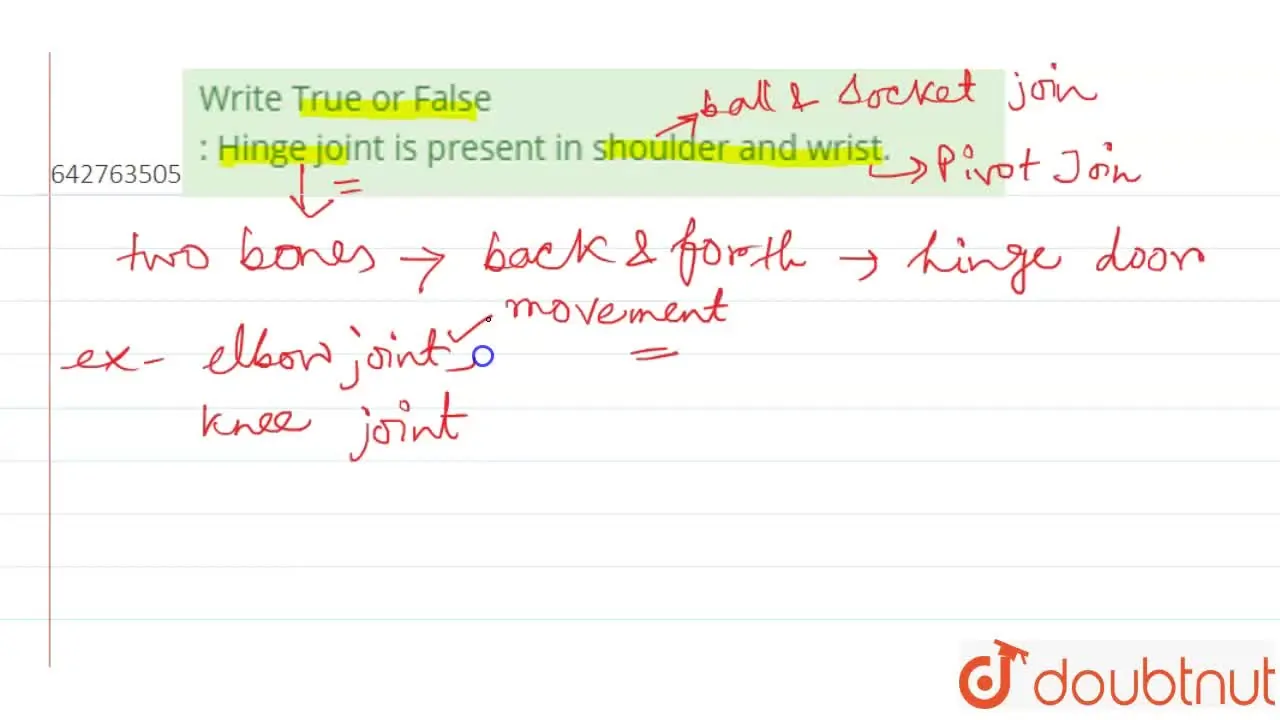 Write True or False
ball & Socket join
: Hinge joint is present in shoulder and wrist.
Pivot Join
642763505
two bones → back & forth → hinge door
movement
ex - elbow joint
knee joint
doubtnut